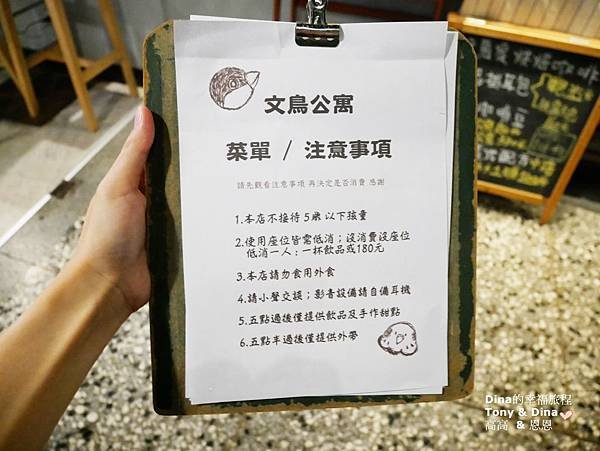 文鳥公寓
菜單 / 注意事項
請先觀看注意事項 再決定是否消費 感謝
1.本店不接待5歲以下孩童
2.使用座位皆需低消;沒消費沒座位
低消一人:一杯飲品或180元
3.本店請勿食用外食
4.請小聲交談;影音設備請自備耳機
5.五點過後僅提供飲品及手作甜點
6.五點半過後僅提供外帶
Dina的幸福旅程
Tony & Dina
高高 & 恩恩